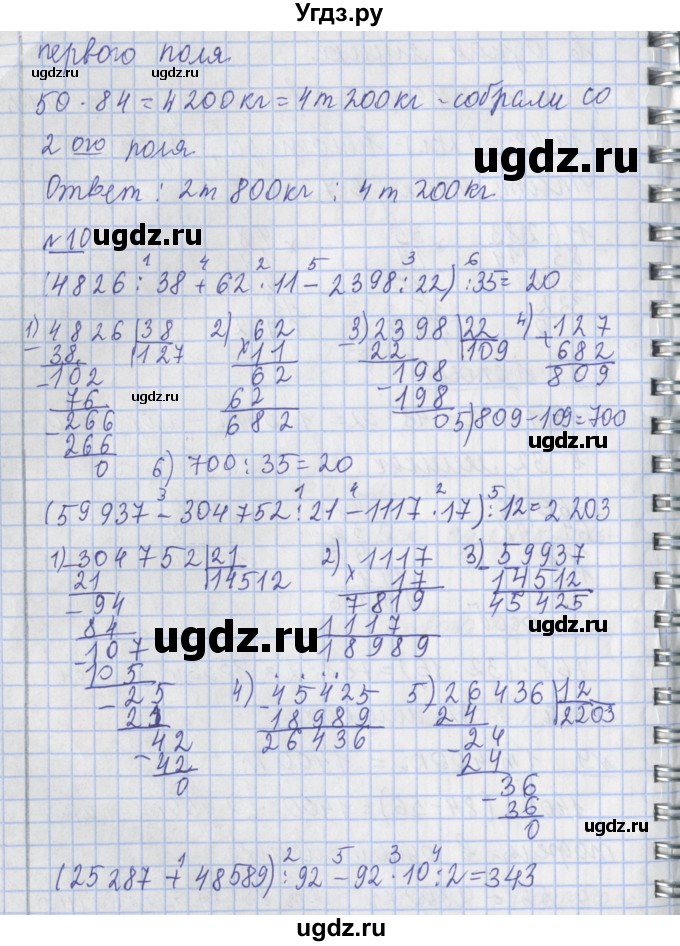 Угдз.ру
первого поля
50 · 84 = 4200кг = 4т 200кг - собрали со
2 ого поля
Ответ : 2т 800кг ; 4т 200кг
№10
1 4 2 5 3 6
(4826 : 38 + 62 · 11 - 2398 : 22) : 35 = 20
1) 4826 | 38 2) 62 3) 2398 | 22 4) 127
- 38 127 × 11 - 22 109 + 682
- 102 62 - 198 809
76 62 - 198
- 266 682 0 5) 809 - 109 = 700
266
0 6) 700 : 35 = 20
3 1 4 2 5
(59937 - 304752 : 21 - 1117 · 17) : 12 = 2203
1) - 304752 | 21 2) 1117 3) - 59937
21 14512 × 17 14512
- 94 7819 45425
84 1117
- 107 18989
105
- 25 4) - 45425 5) 26436 | 12
21 18989 24 2203
- 42 26436 - 24
- 42 24
0 - 36
36
0
1 2 5 3 4
(25287 + 48589) : 92 - 92 · 10 : 2 = 343
ugdz.ru
ugdz.ru
ugdz.ru
ugdz.ru
ugdz.ru
ugdz.ru
ugdz.ru
ugdz.ru
ugdz.ru
ugdz.ru
ugdz.ru
ugdz.ru
ugdz.ru
ugdz.ru